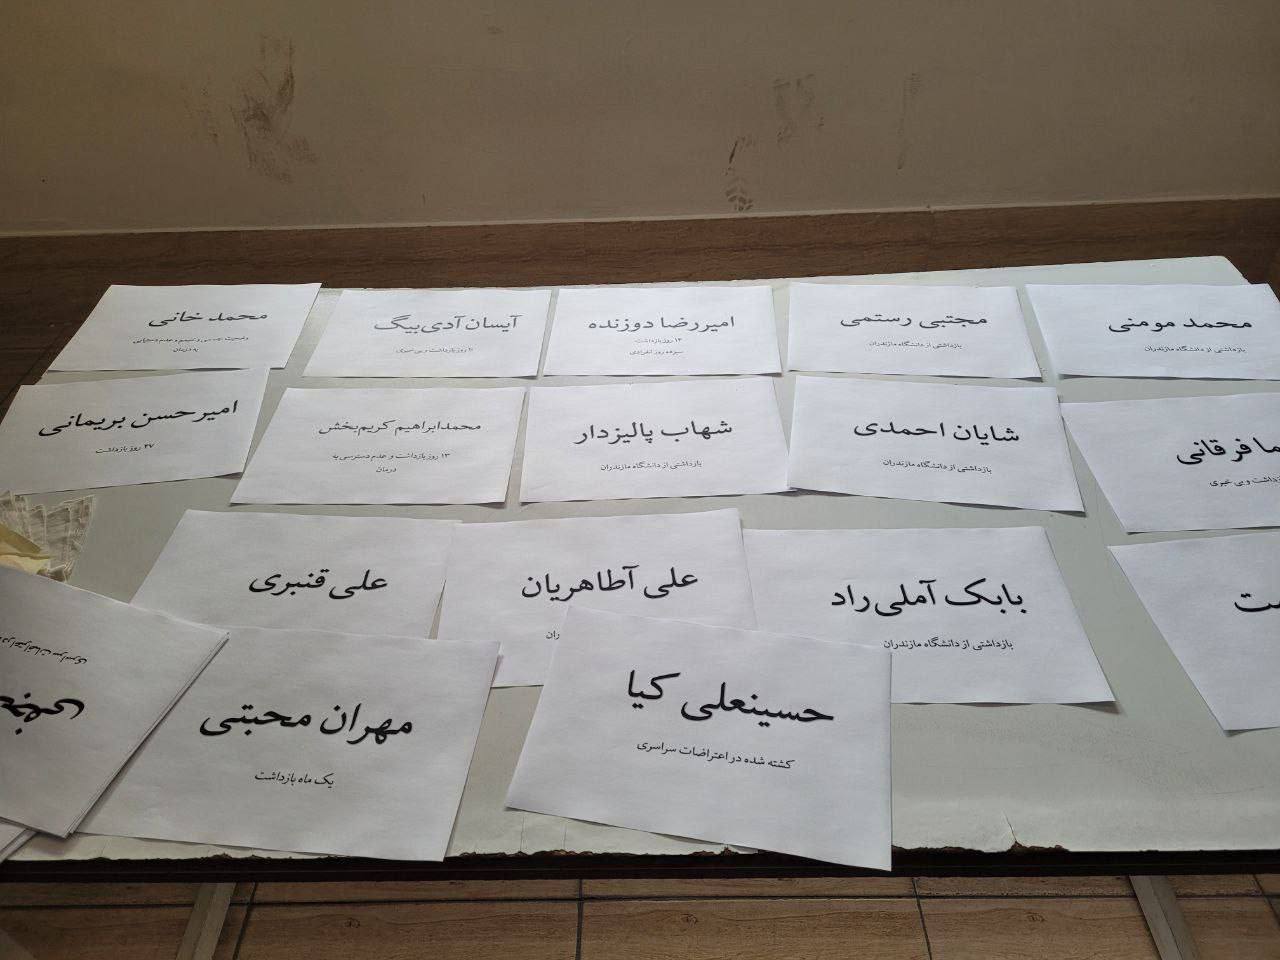 محمد مومنی
بازداشتی از دانشگاه مازندران
مجتبی رستمی
بازداشتی از دانشگاه مازندران
امیررضا دوزنده
۱۳ روز بازداشت
سیزده روز انفرادی
آیسان آدی‌بیگ
روز بازداشت و بی خبری
محمد خانی
وضعیت جسمی وخیم و عدم دسترسی
به درمان
ما فرقانی
بازداشت و بی خبری
شایان احمدی
بازداشتی از دانشگاه مازندران
شهاب پالیزدار
بازداشتی از دانشگاه مازندران
محمدابراهیم کریم‌بخش
۱۳ روز بازداشت و عدم دسترسی به
درمان
امیرحسن بریمانی
۲۷ روز بازداشت
بابک آملی‌راد
بازداشتی از دانشگاه مازندران
علی آطاهریان
علی قنبری
حسینعلی کیا
کشته شده در اعتراضات سراسری
مهران محبتی
یک ماه بازداشت
در اعتراضات سراسری